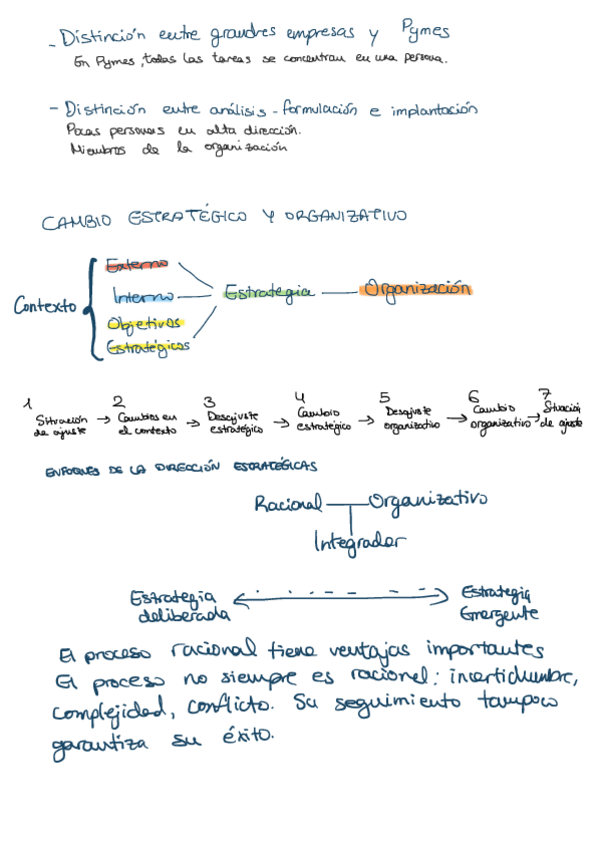 - Distinción entre grandres empresas y Pymes
En Pymes, todas las tareas se concentran en una persona.
- Distinción entre análisis - formulación e implantación
Pocas personas en alta dirección.
Miembros de la organización
CAMBIO ESTRATÉGICO Y ORGANIZATIVO
Contexto
Externo
Interno
Objetivos
Estratégicos
Estrategia
Organización
1 2 3 4 5 6 7
Situación de ajuste → Cambios en el contexto → Desajuste estratégico → Cambio estratégico → Desajuste organizativo → Cambio organizativo → Situación de ajuste
ENFOQUES DE LA DIRECCIÓN ESTRATÉGICAS
Racional Organizativo
Integrador
Estrategia deliberada
Estrategia Emergente
El proceso racional tiene ventajas importantes
El proceso no siempre es racional: incertidumbre,
complejidad, conflicto. Su seguimiento tampoco
garantiza su éxito.